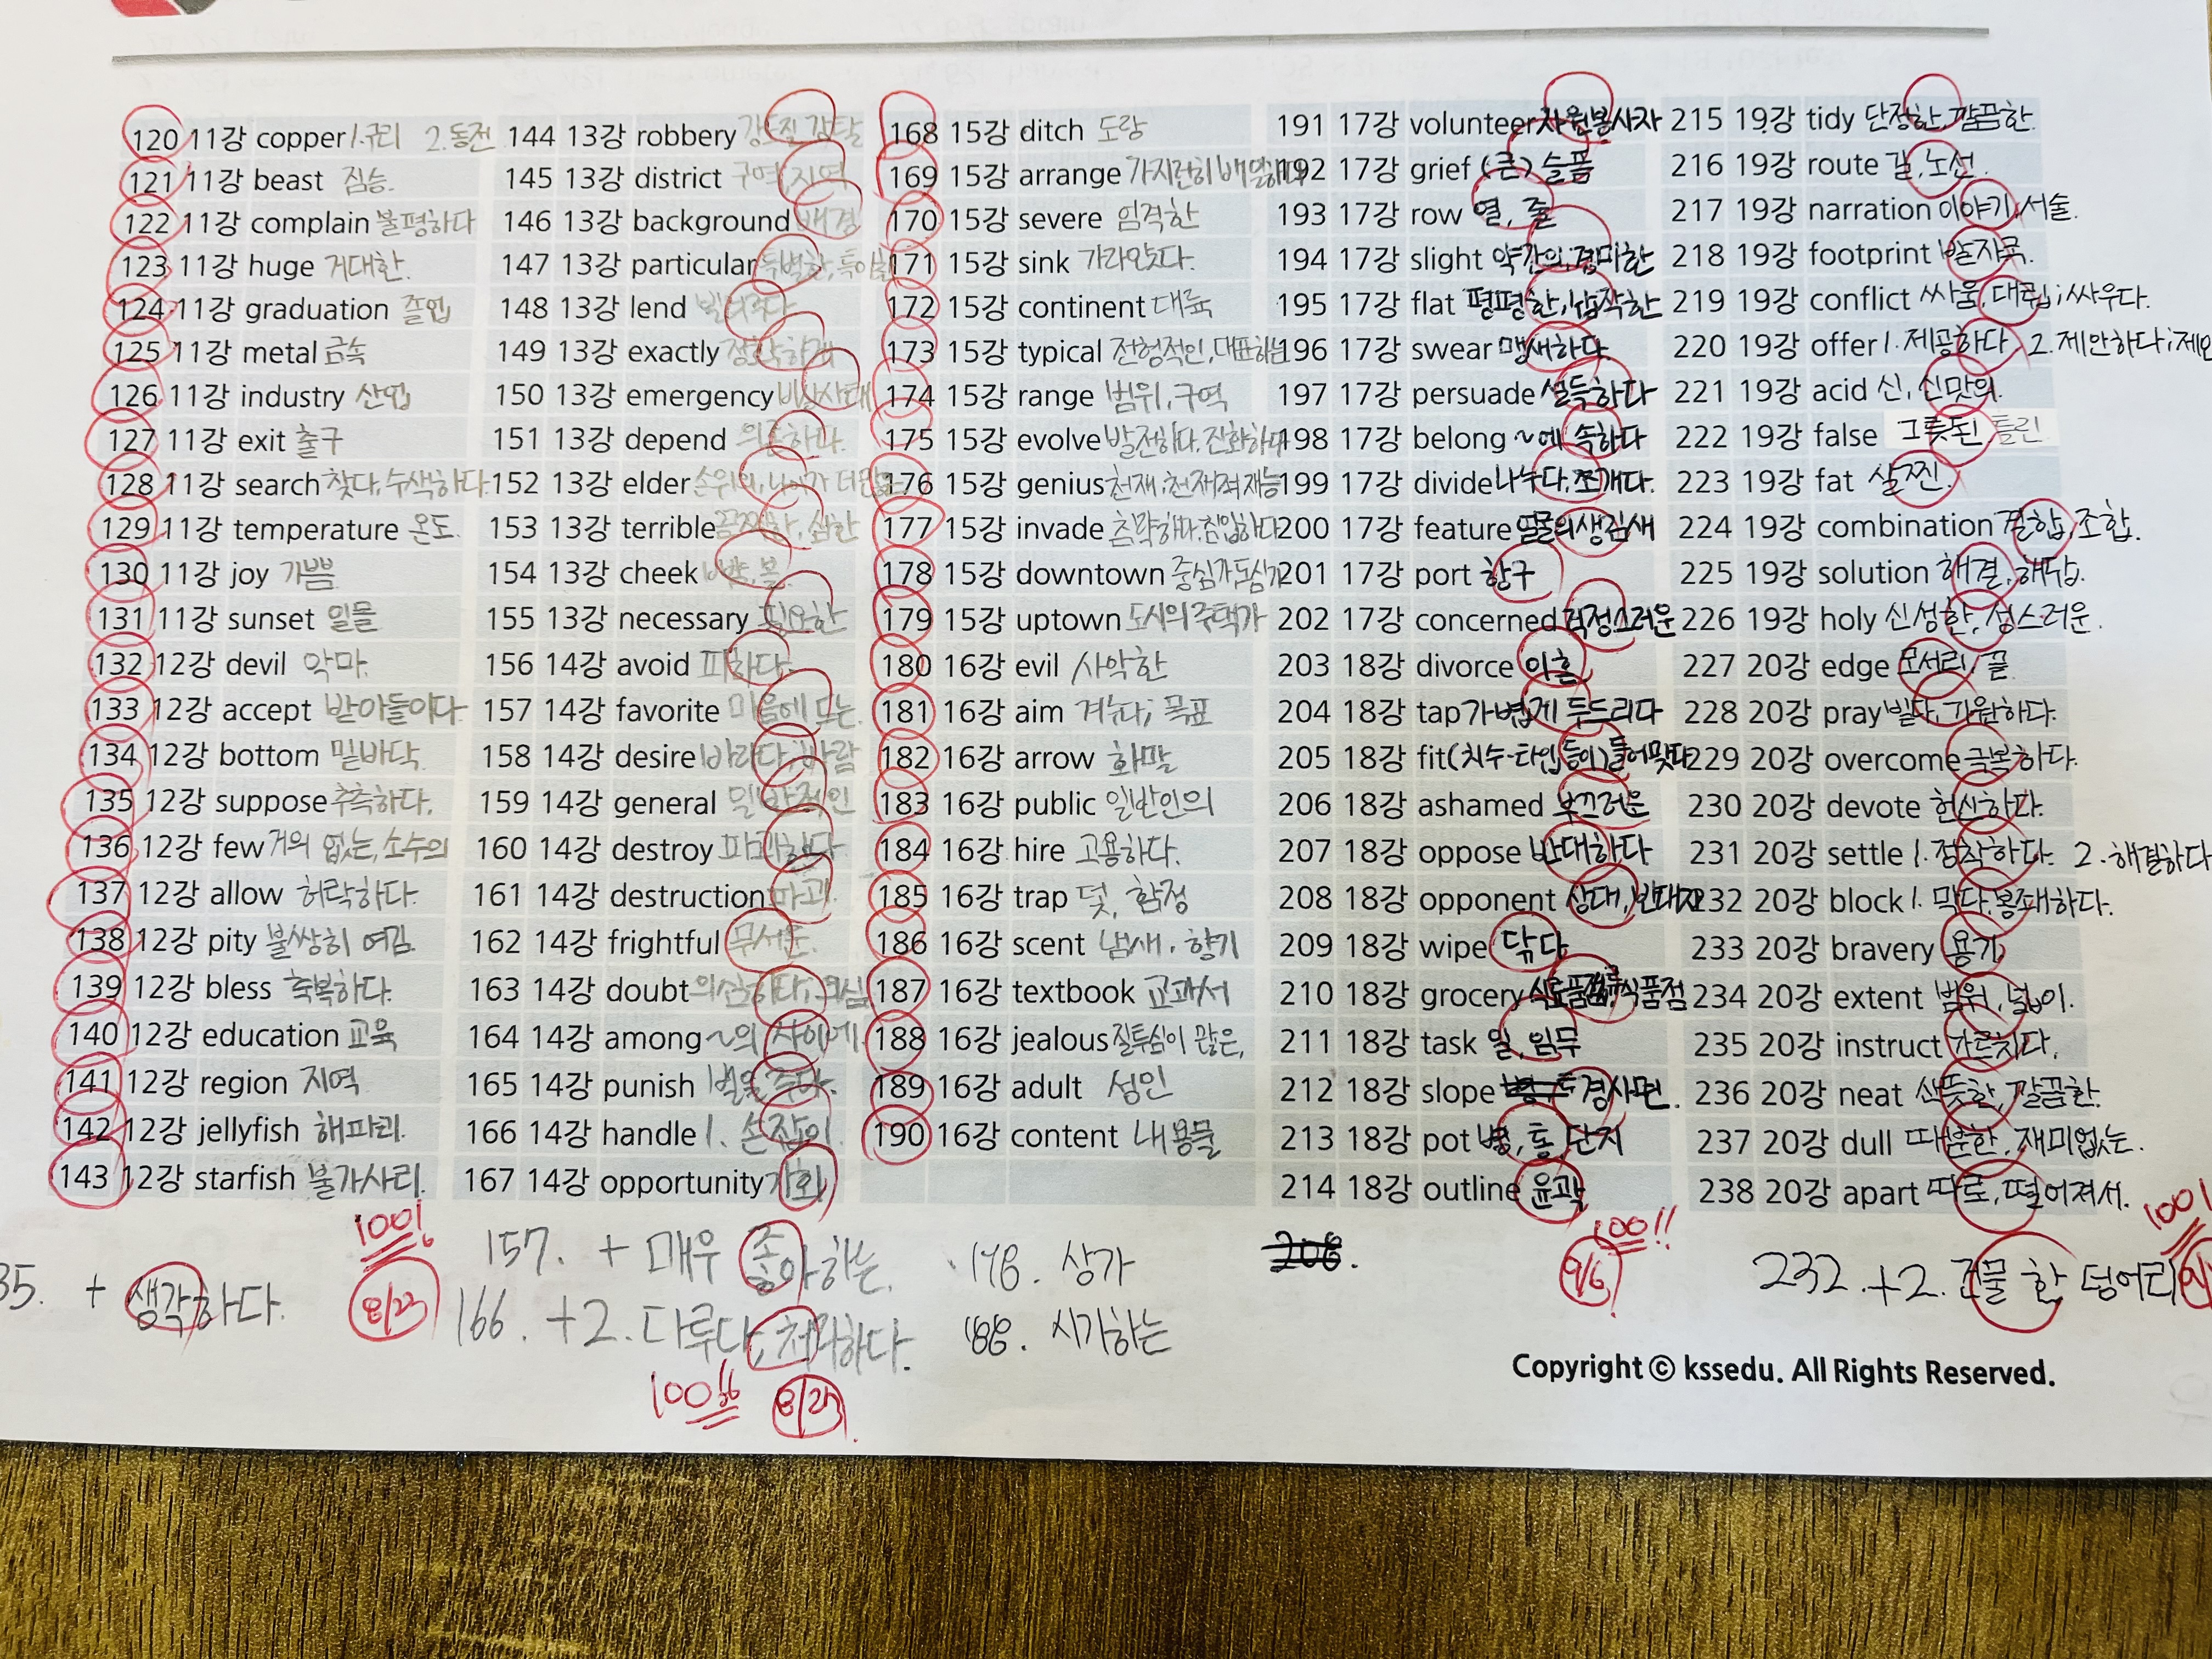 120 11강 copper 1.구리 2.동전
121 11강 beast 짐승.
122 11강 complain 불평하다
123 11강 huge 거대한.
124 11강 graduation 졸업
125 11강 metal 금속
126 11강 industry 산업
127 11강 exit 출구
128 11강 search 찾다, 수색하다.
129 11강 temperature 온도.
130 11강 joy 기쁨
131 11강 sunset 일몰
132 12강 devil 악마.
133 12강 accept 받아들이다.
134 12강 bottom 밑바닥.
135 12강 suppose 추측하다.
136 12강 few 거의 없는, 소수의
137 12강 allow 허락하다.
138 12강 pity 불쌍히 여김.
139 12강 bless 축복하다.
140 12강 education 교육
141 12강 region 지역
142 12강 jellyfish 해파리.
143 12강 starfish 불가사리.
35. + 생각하다.
100!
8/23
144 13강 robbery 강도질, 강탈
145 13강 district 구역, 지역
146 13강 background 배경
147 13강 particular 특별한, 특이한
148 13강 lend 빌려주다
149 13강 exactly 정확하게
150 13강 emergency 비상사태
151 13강 depend 의존하다.
152 13강 elder 손위의, 나이가 더
153 13강 terrible 끔찍한, 심한
154 13강 cheek 뺨, 볼
155 13강 necessary 필요한
156 14강 avoid 피하다.
157 14강 favorite 마음에 드는.
158 14강 desire 바라다; 바람
159 14강 general 일반적인
160 14강 destroy 파괴하다
161 14강 destruction 파괴.
162 14강 frightful 무서운.
163 14강 doubt 의심하다, 의심
164 14강 among ~의 사이에.
165 14강 punish 벌을 주다.
166 14강 handle 1. 손잡이.
167 14강 opportunity 기회
157. + 매우 좋아하는.
166. +2. 다루다, 처리하다.
100
8/23
168 15강 ditch 도랑
169 15강 arrange 가지런히 배열하다
170 15강 severe 엄격한
171 15강 sink 가라앉다.
172 15강 continent 대륙
173 15강 typical 전형적인, 대표하는
174 15강 range 범위, 구역
175 15강 evolve 발전하다. 진화하다
176 15강 genius 천재, 천재적 재능
177 15강 invade 침략하다. 침입하다
178 15강 downtown 중심가 도심가
179 15강 uptown 도시의 주택가
180 16강 evil 사악한
181 16강 aim 겨누다; 목표
182 16강 arrow 화살
183 16강 public 일반인의
184 16강 hire 고용하다.
185 16강 trap 덫, 함정
186 16강 scent 냄새, 향기
187 16강 textbook 교과서
188 16강 jealous 질투심이 많은,
189 16강 adult 성인
190 16강 content 내용물
178. 상가
188. 시기하는
191 17강 volunteer 자원봉사자
192 17강 grief (큰) 슬픔
193 17강 row 열, 줄
194 17강 slight 약간의, 경미한
195 17강 flat 평평한, 납작한
196 17강 swear 맹새하다.
197 17강 persuade 설득하다
198 17강 belong ~에 속하다
199 17강 divide 나누다, 쪼개다.
200 17강 feature 얼굴의 생김새
201 17강 port 항구
202 17강 concerned 걱정스러운
203 18강 divorce 이혼
204 18강 tap 가볍게 두드리다
205 18강 fit (치수·타입 등이) 들어맞다
206 18강 ashamed 부끄러운
207 18강 oppose 반대하다
208 18강 opponent 상대, 반대자
209 18강 wipe 닦다
210 18강 grocery 식품점
211 18강 task 일, 임무
212 18강 slope 경사면.
213 18강 pot 병, 통, 단지
214 18강 outline 윤곽
206.
100!!
9/6
215 19강 tidy 단정한, 깔끔한.
216 19강 route 길, 노선.
217 19강 narration 이야기, 서술.
218 19강 footprint 발자국.
219 19강 conflict 싸움, 대립; 싸우다.
220 19강 offer 1. 제공하다 2. 제안하다; 제안
221 19강 acid 신, 신맛의.
222 19강 false 그릇된 틀린.
223 19강 fat 살찐.
224 19강 combination 결합, 조합.
225 19강 solution 해결, 해답.
226 19강 holy 신성한, 성스러운.
227 20강 edge 모서리, 끝
228 20강 pray 빌다, 기원하다.
229 20강 overcome 극복하다.
230 20강 devote 헌신하다.
231 20강 settle 1. 정착하다. 2. 해결하다
232 20강 block 1. 막다, 봉쇄하다.
233 20강 bravery 용기
234 20강 extent 범위, 넓이.
235 20강 instruct 가르치다.
236 20강 neat 산뜻한, 깔끔한.
237 20강 dull 따분한, 재미없는.
238 20강 apart 따로, 떨어져서.
232. +2. 건물 한 덩어리
100!
Copyright © kssedu. All Rights Reserved.